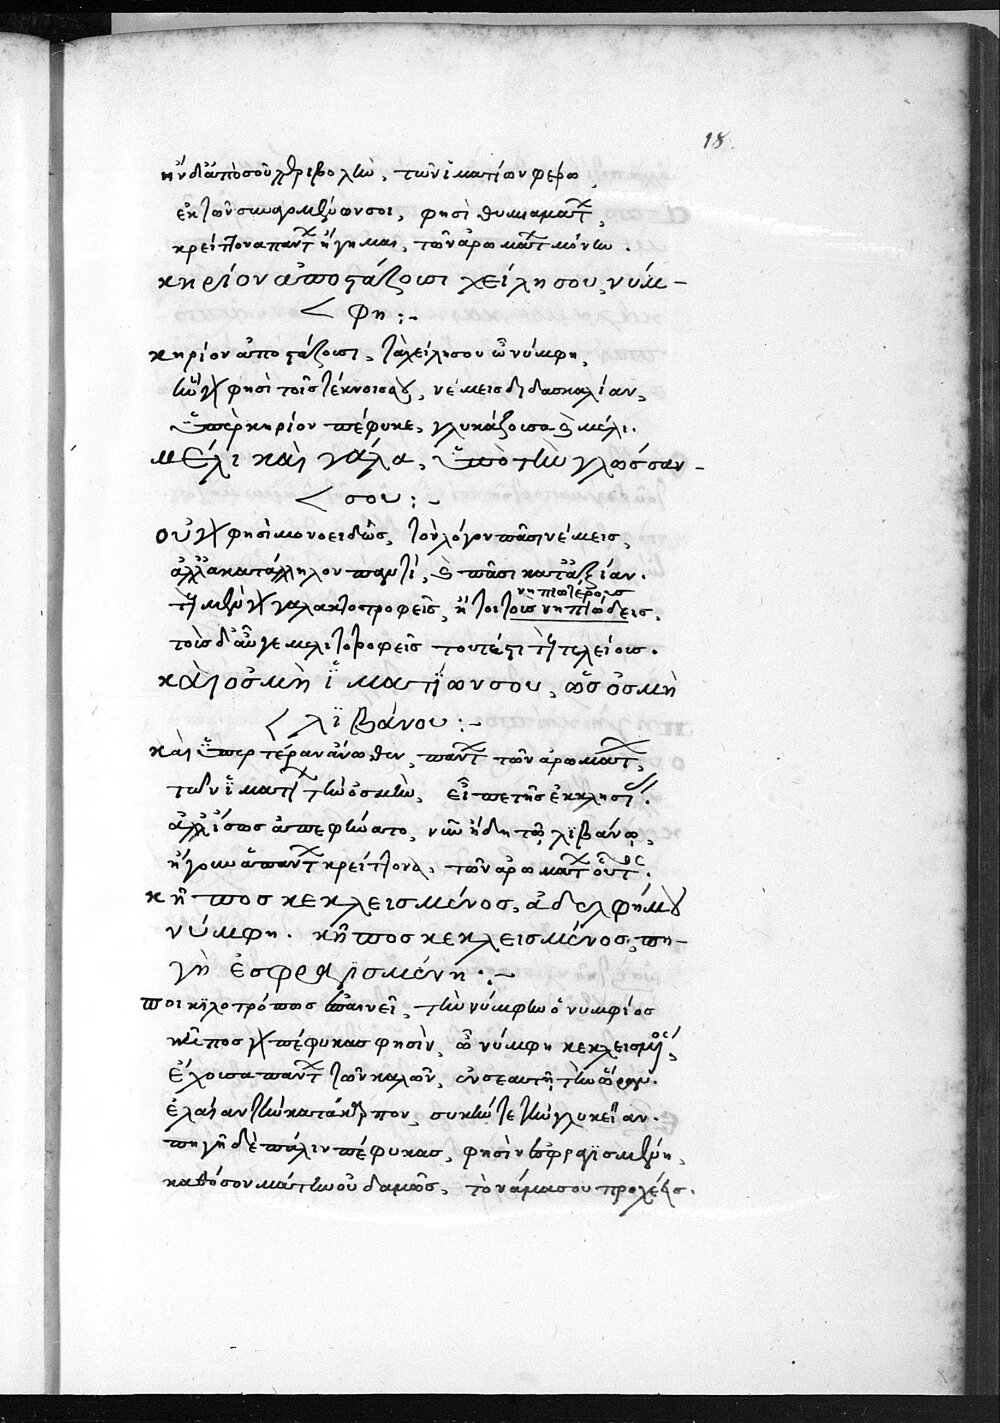 18
ἣν δ' ἀπὸ σοῦ τριβολὴν, τῶν ἱματίων φέρω,
ἐκ τῶν σμυρμένων σοι, φησὶ θυμιαμάτων,
κρείττονα πάντων ἥγημαι, τῶν ἀρωμάτων μόνην.
κηρίον ἀποστάζουσι χείλη σου, νύμ-
φη :-
κηρίον ἀποστάζουσι, τὰ χείλη σου ὦ νύμφη,
ἣν γὰρ φησὶ τοῖς τέκνοις σου, νέμεις διδασκαλίαν,
ὑπὲρ κηρίον πέφυκε, γλυκάζουσα καὶ μέλι.
μέλι καὶ γάλα, ὑπὸ τὴν γλῶσσαν
σου :-
οὐ γὰρ φησὶ μονοειδῶς, τὸν λόγον πᾶσι νέμεις,
ἀλλὰ κατάλληλον παντὶ, καὶ πᾶσι κατ' ἀξίαν.
νηπιωτέροις
τοὺς μὲν γὰρ γαλακτοτροφεῖς, ἤτοι τοῖς νηπιώδεις,
τοὺς δ' αὖγε μελιτοτροφεῖς τουτέστι τοῖς τελείοις.
καὶ ὀσμὴ ἱματίων σου, ὡς ὀσμὴ
λιβάνου :-
καὶ ὑπερτέραν ἄνωθεν, πάντων τῶν ἀρωμάτων,
τῶν ἱματίων τὴν ὀσμὴν, εἶπε τῆς ἐκκλησίας.
ἀλλ' ἴσως ἀπεφήνατο, νῦν ἤδη τῷ λιβάνῳ,
ἥγουν ἁπάντων κρείττονα, τῶν ἀρωμάτων οὕτως.
κῆπος κεκλεισμένος, ἀδελφή μου
νύμφη. κῆπος κεκλεισμένος, πη-
γὴ ἐσφραγισμένη :-
ποικιλοτρόπως ἐπαινεῖ, τὴν νύμφην ὁ νυμφίος
κῆπος γὰρ πέφυκας φησὶν, ὦ νύμφη κεκλεισμένος,
ἔχουσα πάντων τῶν καλῶν, ἐν σεαυτῇ τὴν ὥραν.
ἐλαίαν τὴν κατάκαρπον, συκῆν τε τὴν γλυκεῖαν.
πηγὴ δὲ πάλιν πέφυκας, φησὶν ἐσφραγισμένη,
καθόσον μάτην οὐδαμῶς, τὸ νάμα σου προχέεις.